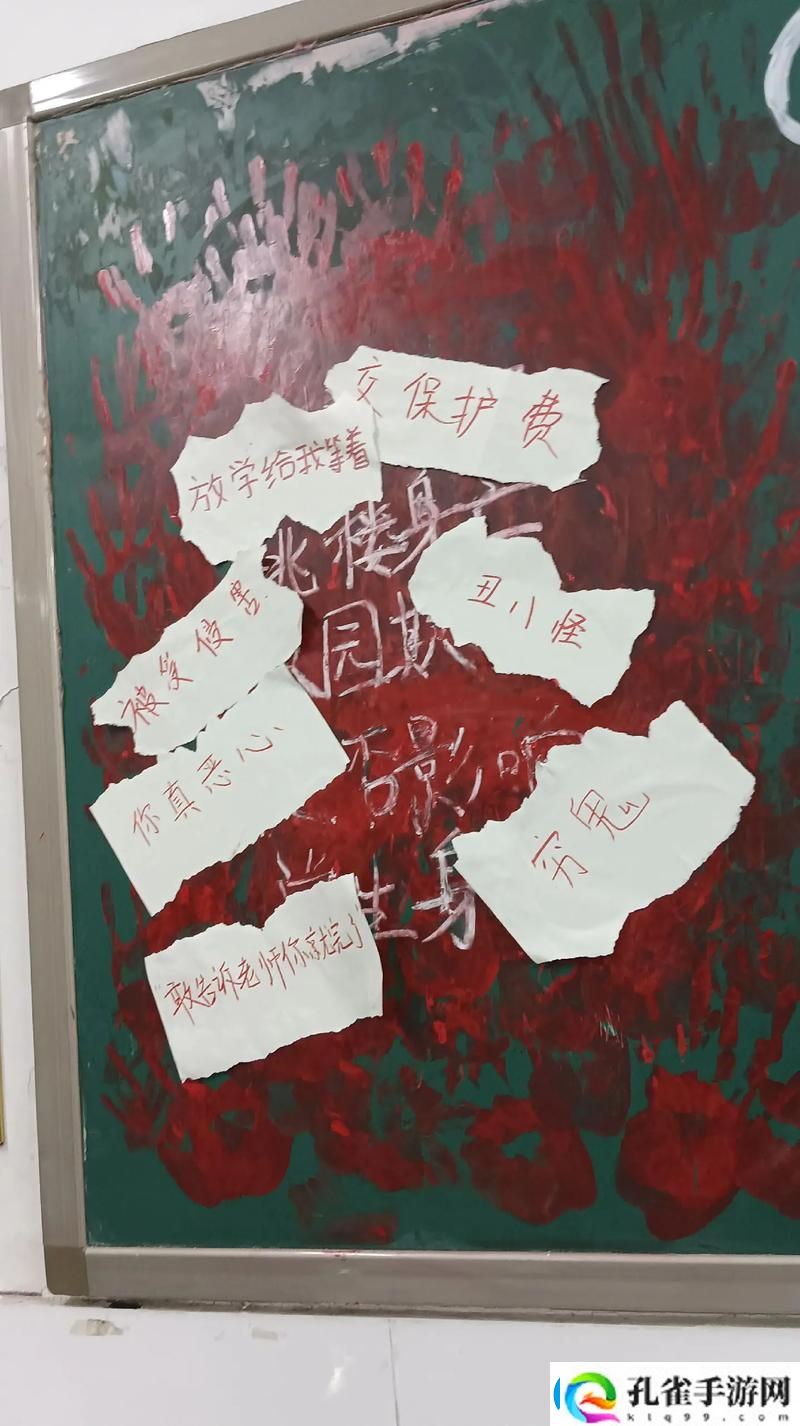 交保护费
放学给我等着
跳楼身亡
丑八怪
被受侵害
园欺
你真恶心
否影响
穷鬼
学生身
敢告诉老师你就完了
孔雀手游网
klq99.com